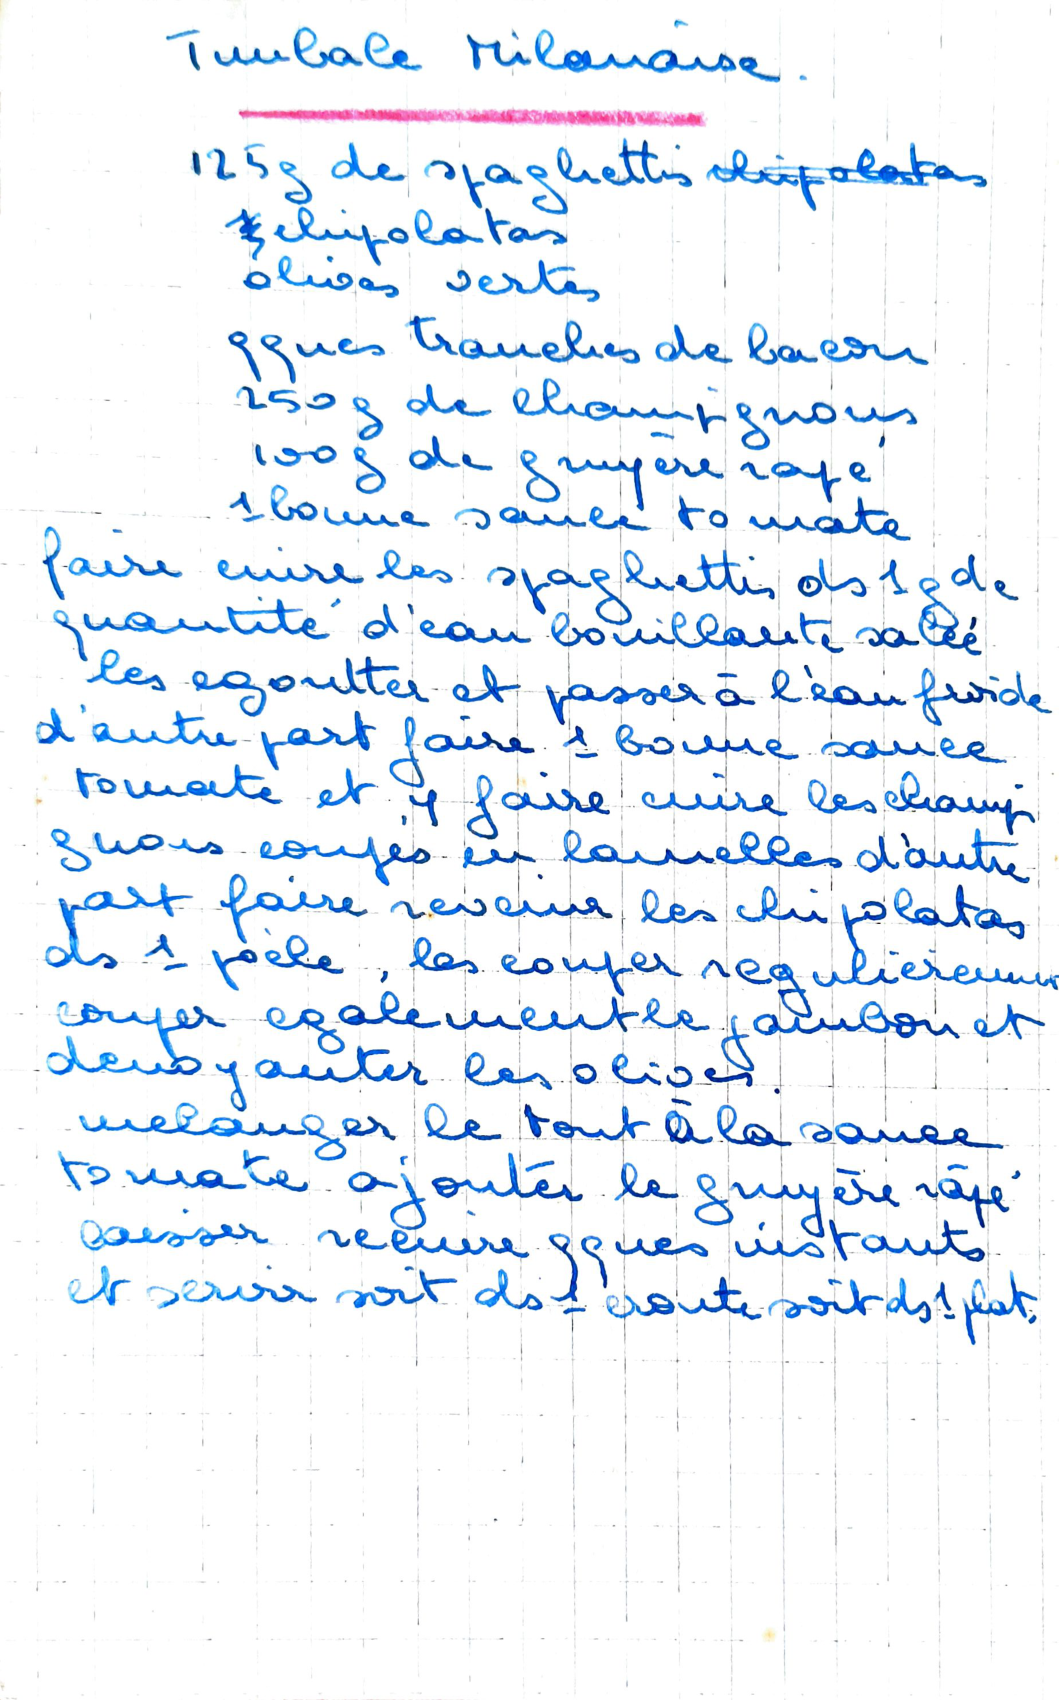 Timbale Milanaise.
125g de spaghettis chipolatas
chipolatas
olives vertes
qques tranches de bacon
250g de champignons
100g de gruyère rapé
1 bonne sauce tomate
faire cuire les spaghettis ds 1 gde
quantité d'eau bouillante salée
les egoutter et passer à l'eau froide
d'autre part faire 1 bonne sauce
tomate et y faire cuire les champi
gnons coupés en lamelles d'autre
part faire revenir les chipolatas
ds 1 poële, les couper regulièrement
couper egalement le jambon et
denoyauter les olives.
melanger le tout à la sauce
tomate ajouter le gruyère râpé
laisser recuire qques instants
et servir soit ds 1 croute soit ds 1 plat.